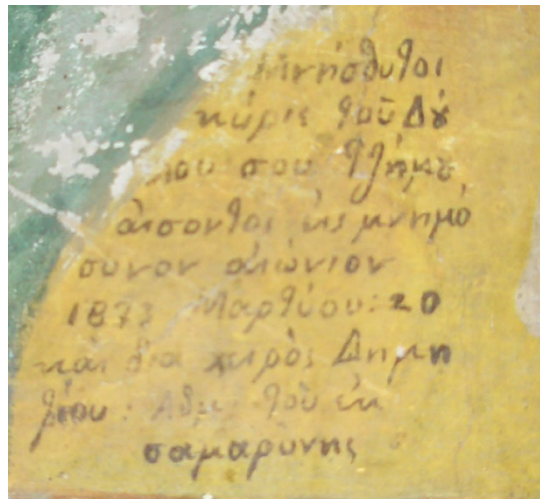 Μνήσθυτοι
κύριε τοῦ Δȣ́
λου σου
εἰς μνημό
συνον αἰώνιον
1873 Μαρτίου: 20
και δια χειρὸς Δημη
τρίου: τοῦ ἐκ
σαμαρύνης